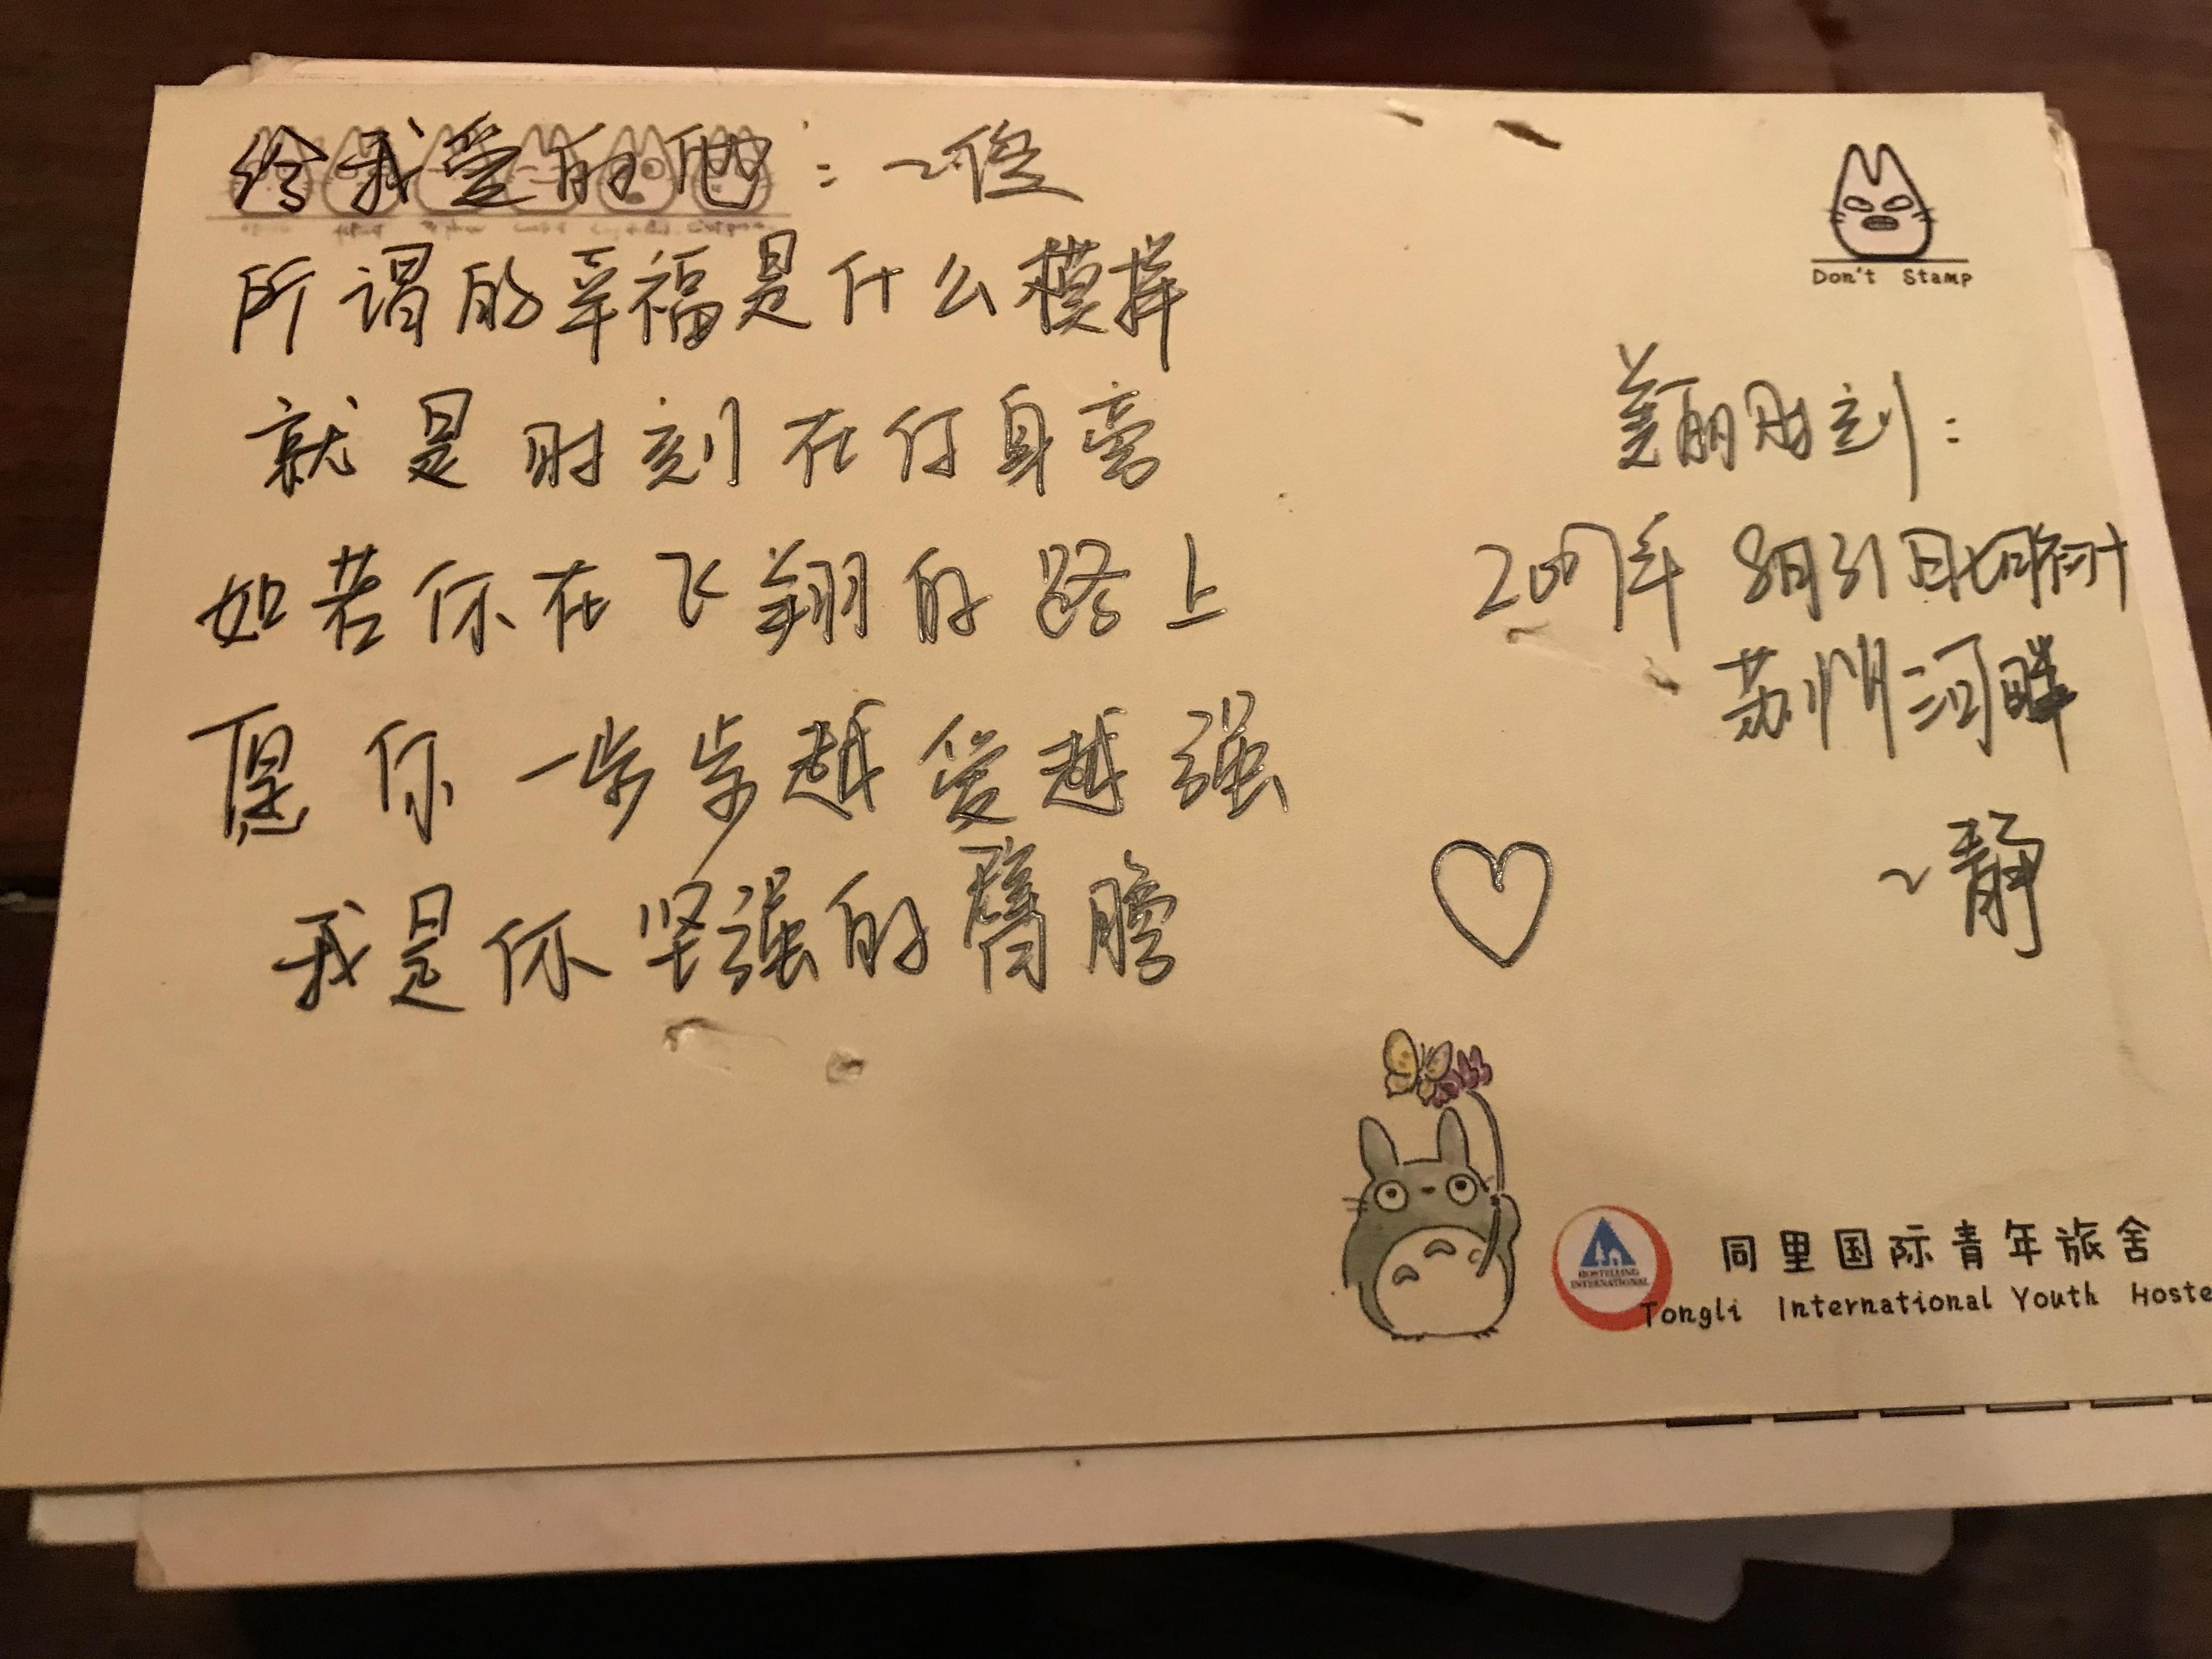 给我爱的他：~俊
所谓的幸福是什么模样
就是时刻在你身旁
如若你在飞翔的路上
愿你一步步越发越强
我是你坚强的臂膀
Don't Stamp
美丽时刻：
8月31日
苏州河畔
~静
HOSTELLING
INTERNATIONAL
同里国际青年旅舍
Tongli International Youth Hoste